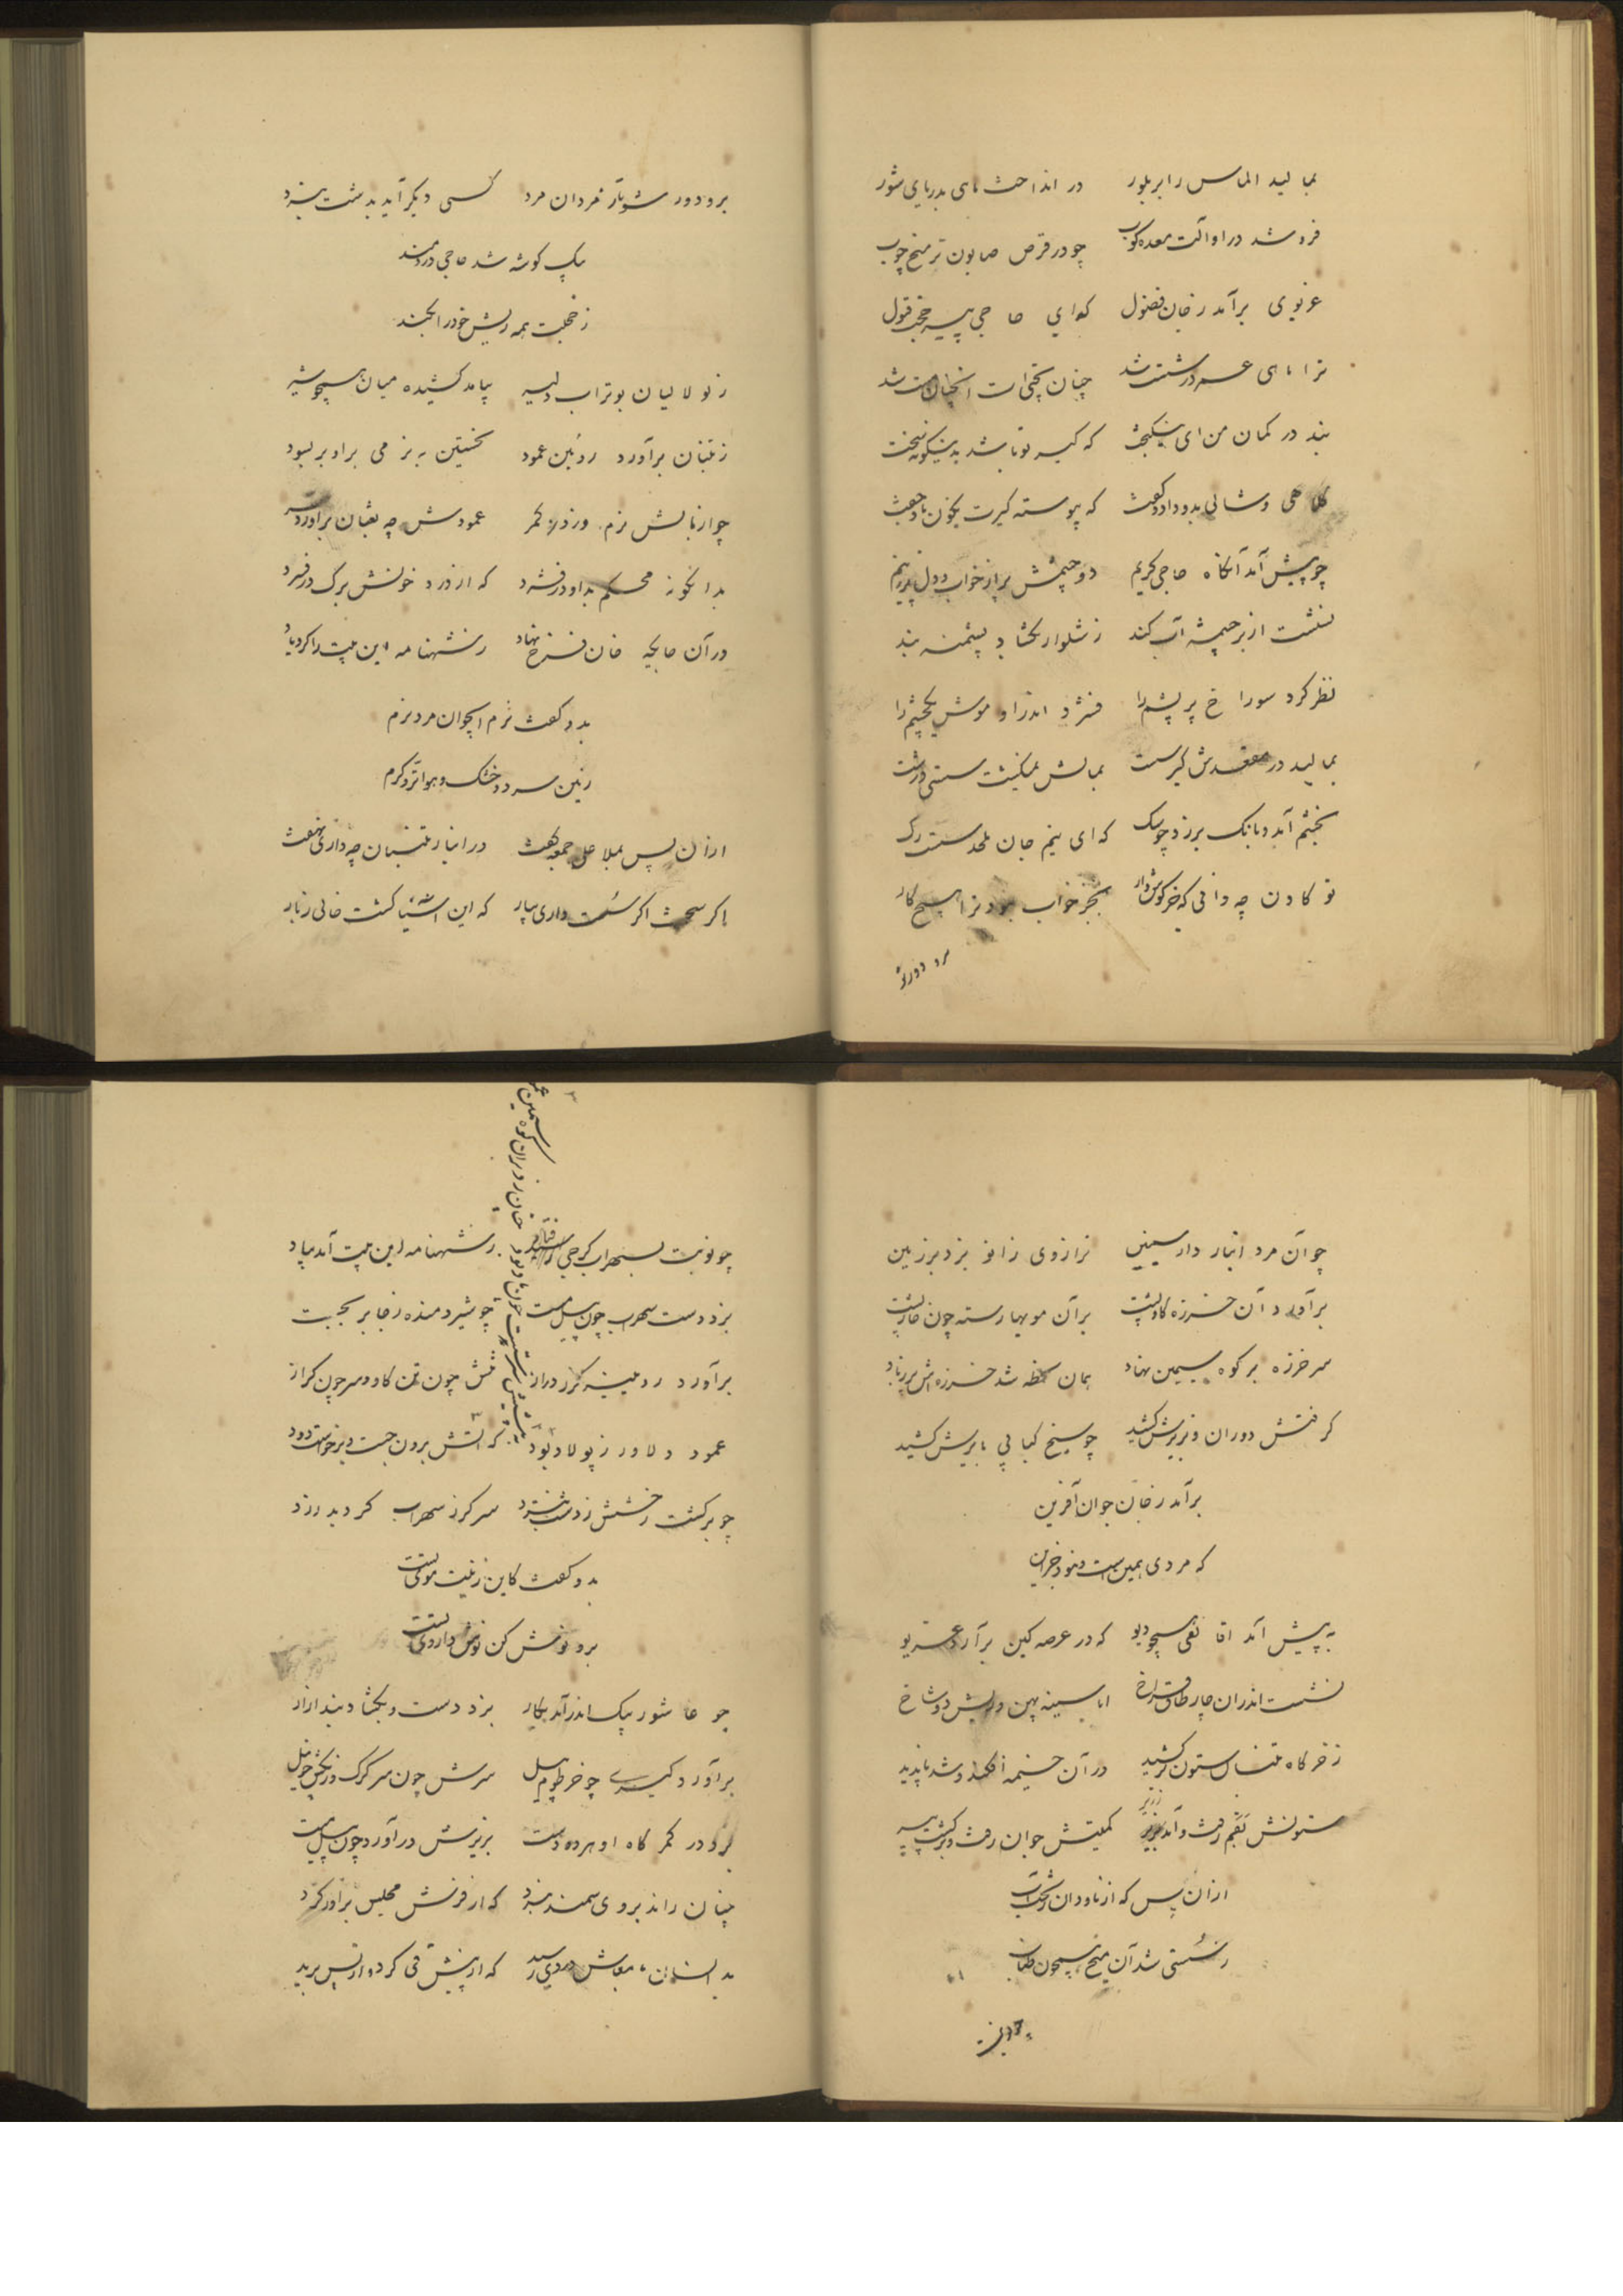 بمالید الماس را بر بلور در انداخت ماهی بدریای شور
فرو شد در او آلت معده کوب چو در قرص صابون تر میخ چوب
غریوی برآمد ز خان فضول کوای حاجی
ترا ماهی عمر در شست شد چنان
بند در کمان من ای که کیر تو باشد بدینگونه سخت
کلاهی و شالی بدو داد و گفت که پیوسته کیرت بکون باد جفت
چو پیش آمد آنگاه حاجی کریم دو چشمش پر از خواب و دل پر ز بیم
نشست از بر چشمه آب کند ز شلوار بگشاد پشمینه بند
نظر کرد سوراخ پر پشم را فشرد اندر او موش یکچشم را
بمالید در مقعدش کیر سست بمالش نمیگشت سستی درست
بخشم آمد و بانگ برزد چو سگ که ای نیم جان ملحد سست رگ
تو گادن چه دانی که خرگوش وار بجز خواب نبود ترا هیچ کار
برو دور شو
برو دور شو از مردان مرد کسی دیگر آید بدشت نبرد
بیک گوشه شد حاجی دردمند
ز خجلت همه ریش خود را بکند
ز نو لالیان بوتراب دلیر بیامد کشیده میان همچو شیر
ز تنبان برآورد روئین عمود نخستین به نرمی بر او بر بسود
چو از مالش نرم عمودش چه تنبان برآورد سر
بدانگونه محکم بدو در فشرد که از درد خونش برگ در فسرد
در آن حال خان فرخ نهاد ز شهنامه این بیت را کرد یاد
بدو گفت نرم ای جوان مرد نرم
زمین سرد و خشک و هوا تر و گرم
از آن پس بملا علی جمعه گفت در انبار تنبان چه داری نهفت
اگر سخت اگر سست داری بیار که این آشیان گشت خالی ز مار
جوان مرد انبار دار ترازوی زانو بزد بر زمین
برآورد آن خرزه گاو پشت بر آن مویها رسته چون خارپشت
سر خرزه بر کوه سیمین نهاد همان لحظه شد خرزه اش پر ز باد
گرفتش دوران و بزیرش کشید چو سیخ کبابی بایرش کشید
برآمد ز خان جوان آفرین
که مردی همین است و نبود جز این
به پیش آمد آقا تقی همچو دیو که در عرصه کین برآرد غریو
نشست اندران چار طاق فراخ ابا سینه پهن و ریش دو شاخ
ز خرگاه تنبان ستون برکشید در آن خیمه افکند و شد ناپدید
ستونش بقم رفت و آمد زریر کمیتش جوان رفت و برگشت پیر
از آن پس که از ناودان ریخت آب
ز سستی شد آن میخ همچون طناب
چو نوبت
چو نوبت بسهراب گرجی فتاد ز شهنامه این بیت آمد بیاد
بزد دست سهراب چون پیل مست چو شیر دمنده ز جا بر بجست
برآورد روئینه گرز دراز تنش چون تن گاو و سر چون گراز
عمود دلاور ز پولاد بود که آتش برون جست و برخواست دود
چو برگشت رخشش ز دشت نبرد سر گرز سهراب گردید زرد
بدو گفت کاین زینت موی تست
برو نوش کن نوش داروی تست
چو عاشور بیک اندر آمد بکار بزد دست و بگشاد بند ازار
برآورد کیری چو خرطوم پیل سرش چون سر گرگ و رنگش چو نیل
بزد در کمر گاه او هر دو دست بزیرش درآورد چون پیل مست
چنان راند بر وی سمند نبرد که از فرش مجلس برآورد گرد
بدانسان معاش دردی رسید که از پیش قی کرد و از پس برید